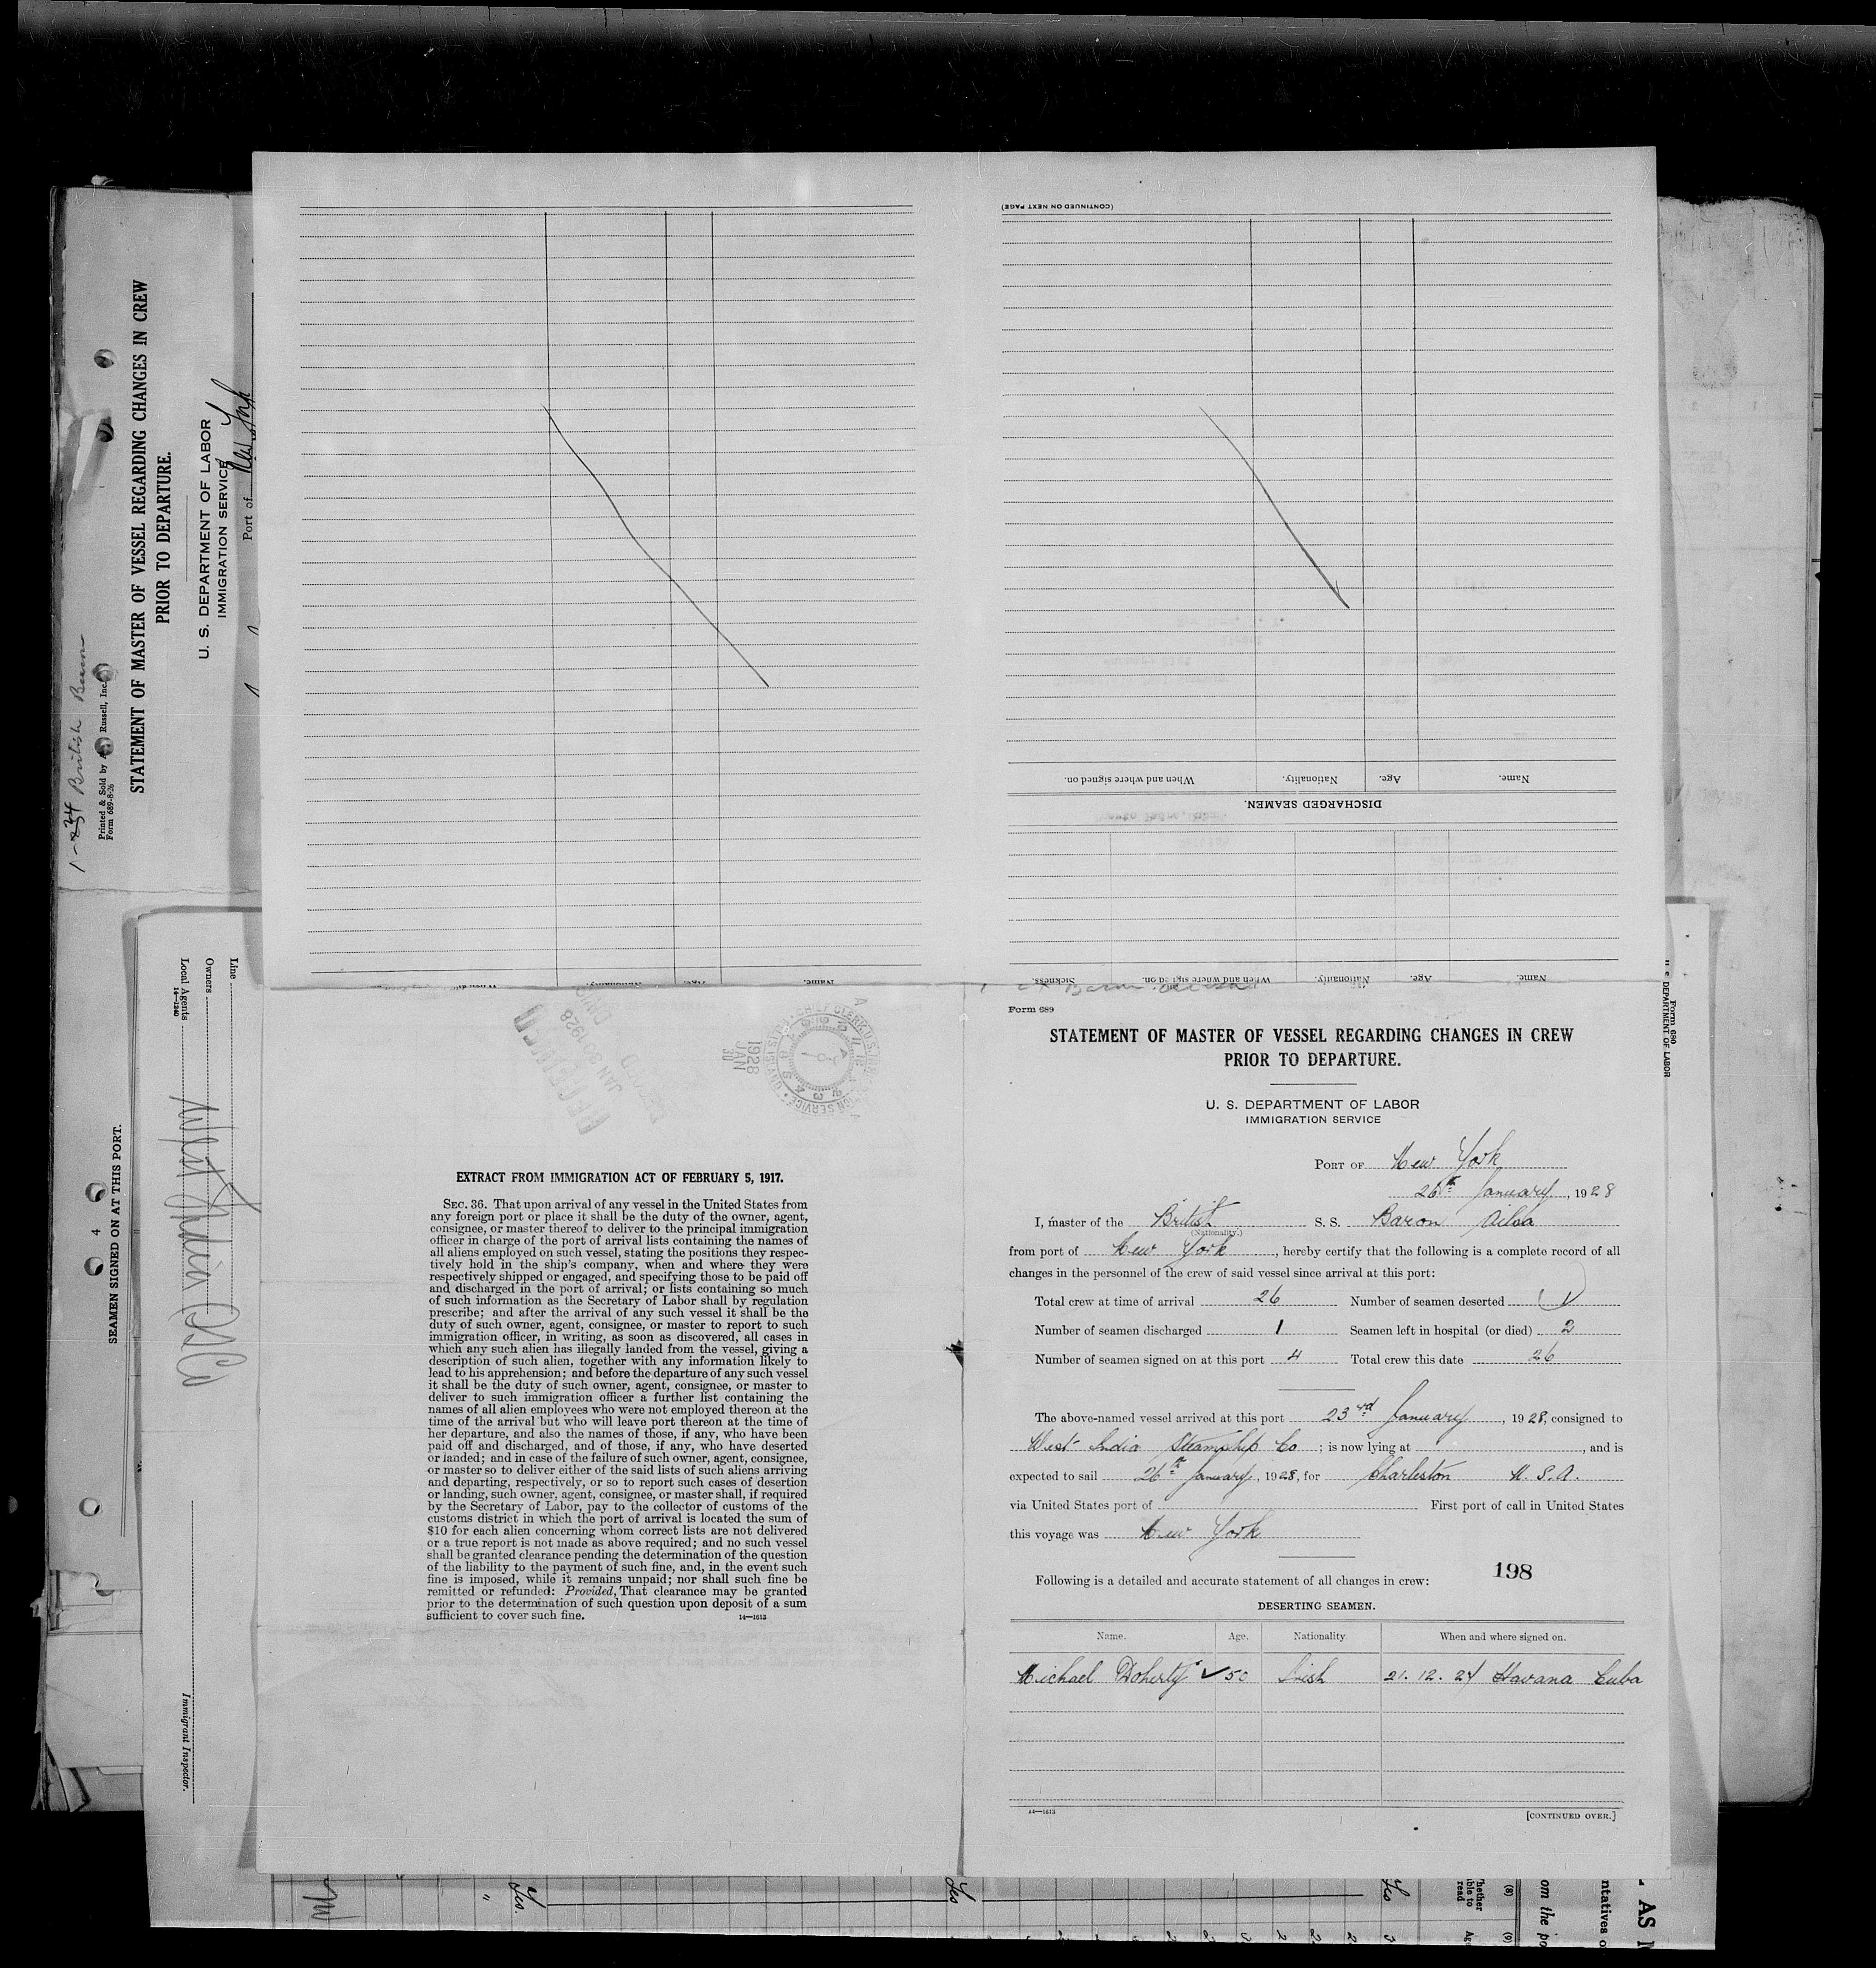 STATEMENT OF MASTER OF VESSEL REGARDING CHANGES IN CREW
PRIOR TO DEPARTURE.
U. S. DEPARTMENT OF LABOR
IMMIGRATION SERVICE
Port of New York
Printed & Sold by Russell, Inc.
Form 689-8-26
SEAMEN SIGNED ON AT THIS PORT.
4
Line
Owners
Local Agents
14—1240
West India SS Co
Immigrant Inspector.
(CONTINUED ON NEXT PAGE)
Name. Age. Nationality. When and where signed on.
DISCHARGED SEAMEN.
Name. Age. Nationality. When and where signed on. Sickness.
1928
JAN
30
JAN 30 1928
EXTRACT FROM IMMIGRATION ACT OF FEBRUARY 5, 1917.
SEC. 36. That upon arrival of any vessel in the United States from
any foreign port or place it shall be the duty of the owner, agent,
consignee, or master thereof to deliver to the principal immigration
officer in charge of the port of arrival lists containing the names of
all aliens employed on such vessel, stating the positions they respec-
tively hold in the ship's company, when and where they were
respectively shipped or engaged, and specifying those to be paid off
and discharged in the port of arrival; or lists containing so much
of such information as the Secretary of Labor shall by regulation
prescribe; and after the arrival of any such vessel it shall be the
duty of such owner, agent, consignee, or master to report to such
immigration officer, in writing, as soon as discovered, all cases in
which any such alien has illegally landed from the vessel, giving a
description of such alien, together with any information likely to
lead to his apprehension; and before the departure of any such vessel
it shall be the duty of such owner, agent, consignee, or master to
deliver to such immigration officer a further list containing the
names of all alien employees who were not employed thereon at the
time of the arrival but who will leave port thereon at the time of
her departure, and also the names of those, if any, who have been
paid off and discharged, and of those, if any, who have deserted
or landed; and in case of the failure of such owner, agent, consignee,
or master so to deliver either of the said lists of such aliens arriving
and departing, respectively, or so to report such cases of desertion
or landing, such owner, agent, consignee, or master shall, if required
by the Secretary of Labor, pay to the collector of customs of the
customs district in which the port of arrival is located the sum of
$10 for each alien concerning whom correct lists are not delivered
or a true report is not made as above required; and no such vessel
shall be granted clearance pending the determination of the question
of the liability to the payment of such fine, and, in the event such
fine is imposed, while it remains unpaid; nor shall such fine be
remitted or refunded: Provided, That clearance may be granted
prior to the determination of such question upon deposit of a sum
sufficient to cover such fine.
14—1613
Form 689
STATEMENT OF MASTER OF VESSEL REGARDING CHANGES IN CREW
PRIOR TO DEPARTURE.
U. S. DEPARTMENT OF LABOR
IMMIGRATION SERVICE
PORT OF New York
26th January, 1928
I, master of the British S. S. Baron Ailsa
(Nationality.)
from port of New York, hereby certify that the following is a complete record of all
changes in the personnel of the crew of said vessel since arrival at this port:
Total crew at time of arrival 26 Number of seamen deserted 1
Number of seamen discharged 1 Seamen left in hospital (or died) 2
Number of seamen signed on at this port 4 Total crew this date 26
The above-named vessel arrived at this port 23rd January, 1928, consigned to
West India Steamship Co; is now lying at , and is
expected to sail 26th January, 1928, for Charleston U. S. A.
via United States port of First port of call in United States
this voyage was New York
198
Following is a detailed and accurate statement of all changes in crew:
DESERTING SEAMEN.
Name. Age. Nationality When and where signed on.
Michael Doherty ✓ 50 Irish 21. 12. 27 Havana Cuba
14—1613
[CONTINUED OVER.]
Form 680
U S DEPARTMENT OF LABOR
Yes.
Yes
Yes
(8)
(9)